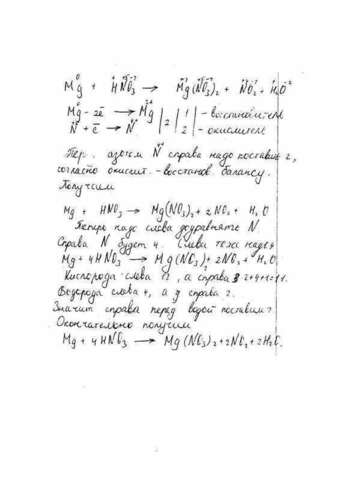 Mg⁰ + H⁺N⁺⁵O₃⁻² → Mg⁺²(N⁺⁵O₃⁻²)₂ + N⁺⁴O₂⁻² + H₂⁺O⁻²
Mg⁰ - 2ē → Mg²⁺ | 2 | 1 | 1 - восстановитель
N⁺⁵ + ē → N⁺⁴ | 2 | 1 | 2 - окислитель
Пер. азотом N⁺⁴ справа надо поставить 2,
согласно окислит.-восстанов. балансу.
Получим
Mg + HNO₃ → Mg(NO₃)₂ + 2NO₂ + H₂O
Теперь надо слева доуравнять N
Справа N будет 4. Слева тоже надо 4
Mg + 4HNO₃ → Mg(NO₃)₂ + 2NO₂ + H₂O.
Кислорода слева 12, а справа 3·2+4+1=11.
Водорода слева 4, а справа 2.
Значит справа перед водой поставим 2
Окончательно получим
Mg + 4HNO₃ → Mg(NO₃)₂ + 2NO₂ + 2H₂O.